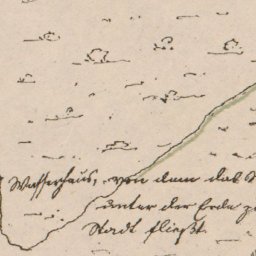 Wasserhaus, von dem das
unter der Erde
Stadt fließt.